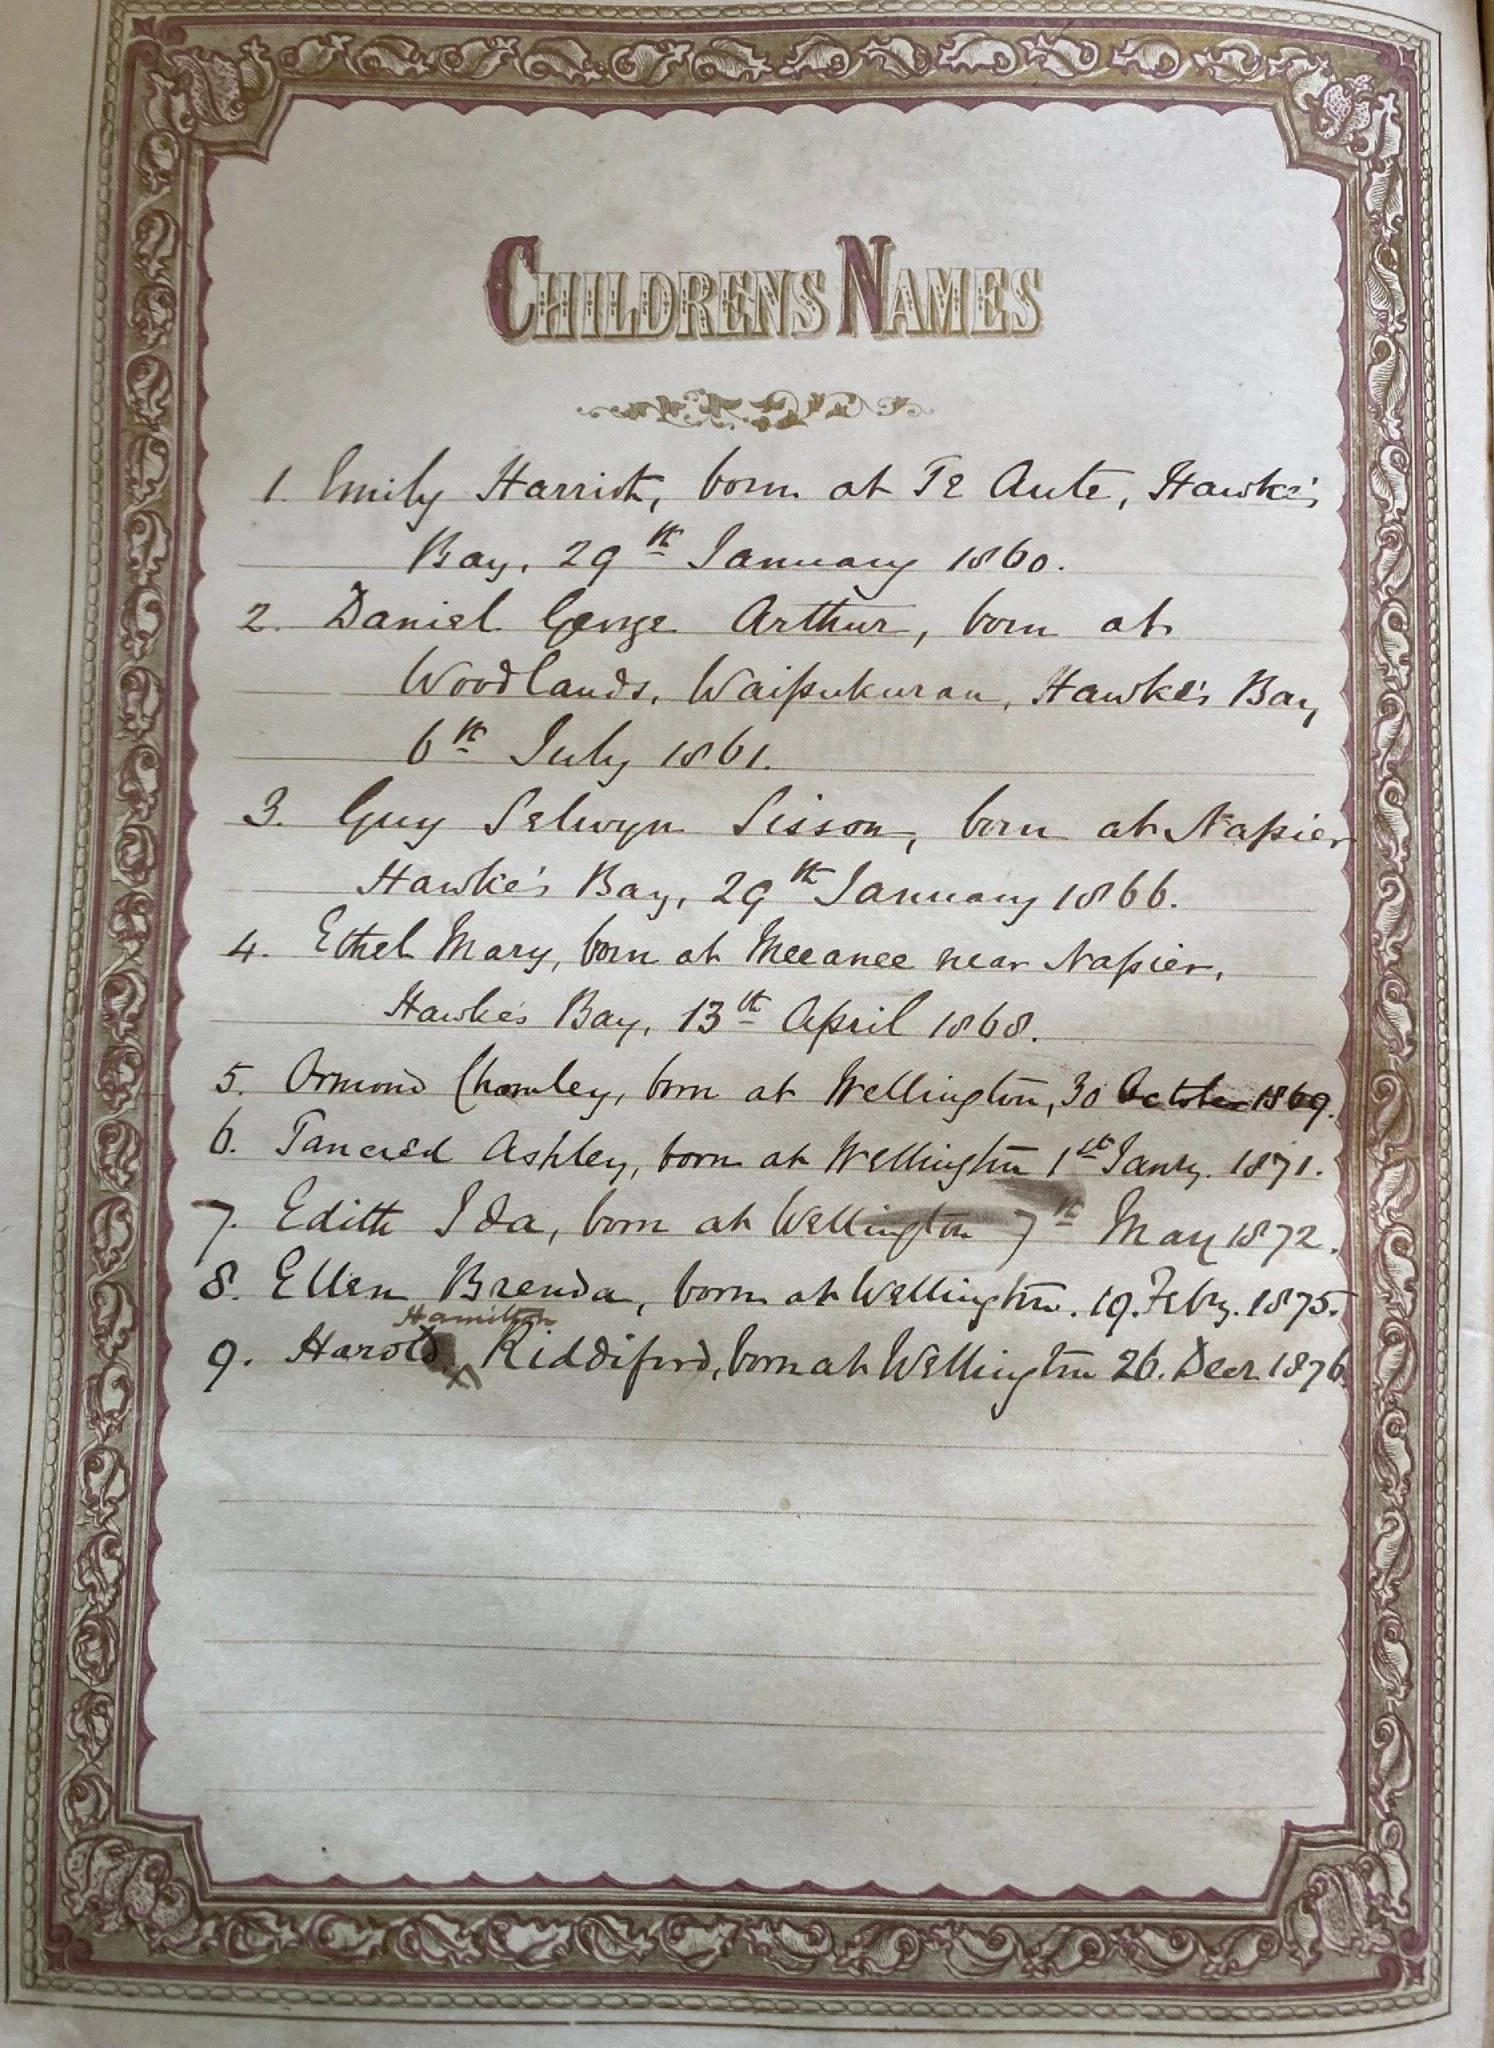 CHILDRENS NAMES
1. Emily Harriet, born at Te Aute, Hawke's
Bay, 29th January 1860.
2. Daniel George Arthur, born at
Woodlands, Waipukurau, Hawke's Bay
6th July 1861.
3. Guy Selwyn Sisson, born at Napier
Hawke's Bay, 29th January 1866.
4. Ethel Mary, born at Meeanee near Napier,
Hawke's Bay, 13th April 1868.
5. Ormond Chomley, born at Wellington, 30 October 1869.
6. Tancred Ashley, born at Wellington 1st Jany. 1871.
7. Edith Ida, born at Wellington 7th May 1872.
8. Ellen Brenda, born at Wellington. 19. Feby. 1875.
Hamilton
9. Harold ^ Riddiford, born at Wellington 26. Decr. 1876.